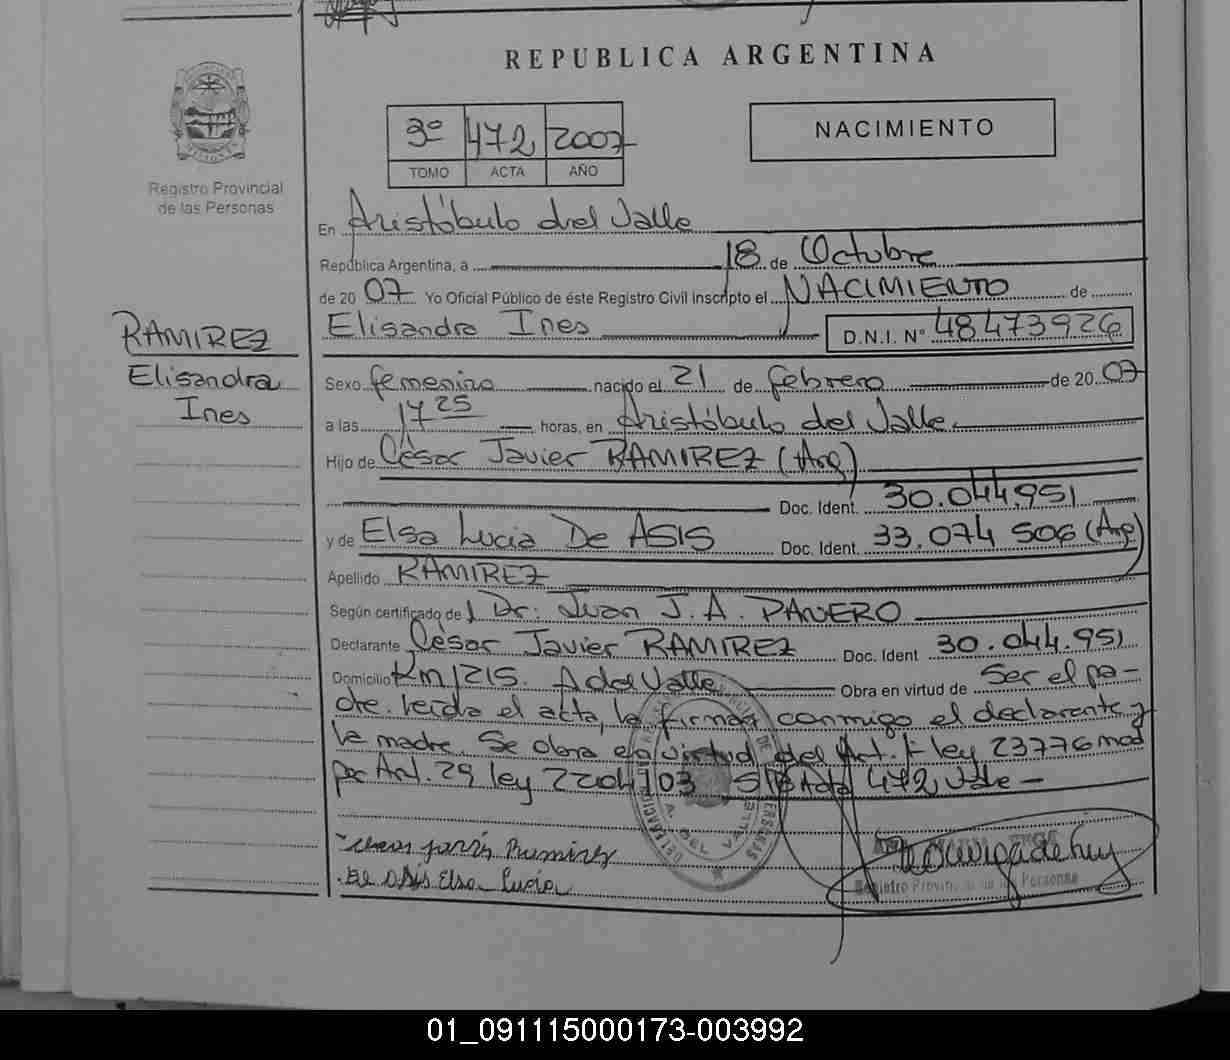 REPUBLICA ARGENTINA
3º 472 2007
TOMO ACTA AÑO
NACIMIENTO
Registro Provincial
de las Personas
En Aristóbulo del Valle
República Argentina, a 18 de Octubre
de 20 07 Yo Oficial Público de éste Registro Civil Inscripto el NACIMIENTO de
Elisandra Ines D.N.I. Nº 48473926
RAMIREZ
Elisandra
Ines
Sexo femenino nacido el 21 de febrero de 20 07
a las 17 25 horas, en Aristóbulo del Valle
Hijo de César Javier RAMIREZ (Arg)
Doc. Ident. 30.044.951
y de Elsa Lucia De ASIS Doc. Ident. 33.074 506 (Arg)
Apellido RAMIREZ
Según certificado de l Dr: Juan J. A. PANERO
Declarante César Javier RAMIREZ Doc. Ident 30.044.951
Domicilio Km 1215. A del Valle Obra en virtud de Ser el pa-
dre. leída el acta, la firman conmigo el declarante y
la madre. Se obra en virtud del Art. 1º ley 23776 mod
por Art. 29 ley 22047/03 S/B Acta 472 Vale -
Ramirez
De Asis Elsa Lucia
Registro Provincial de las Personas
01_091115000173-003992